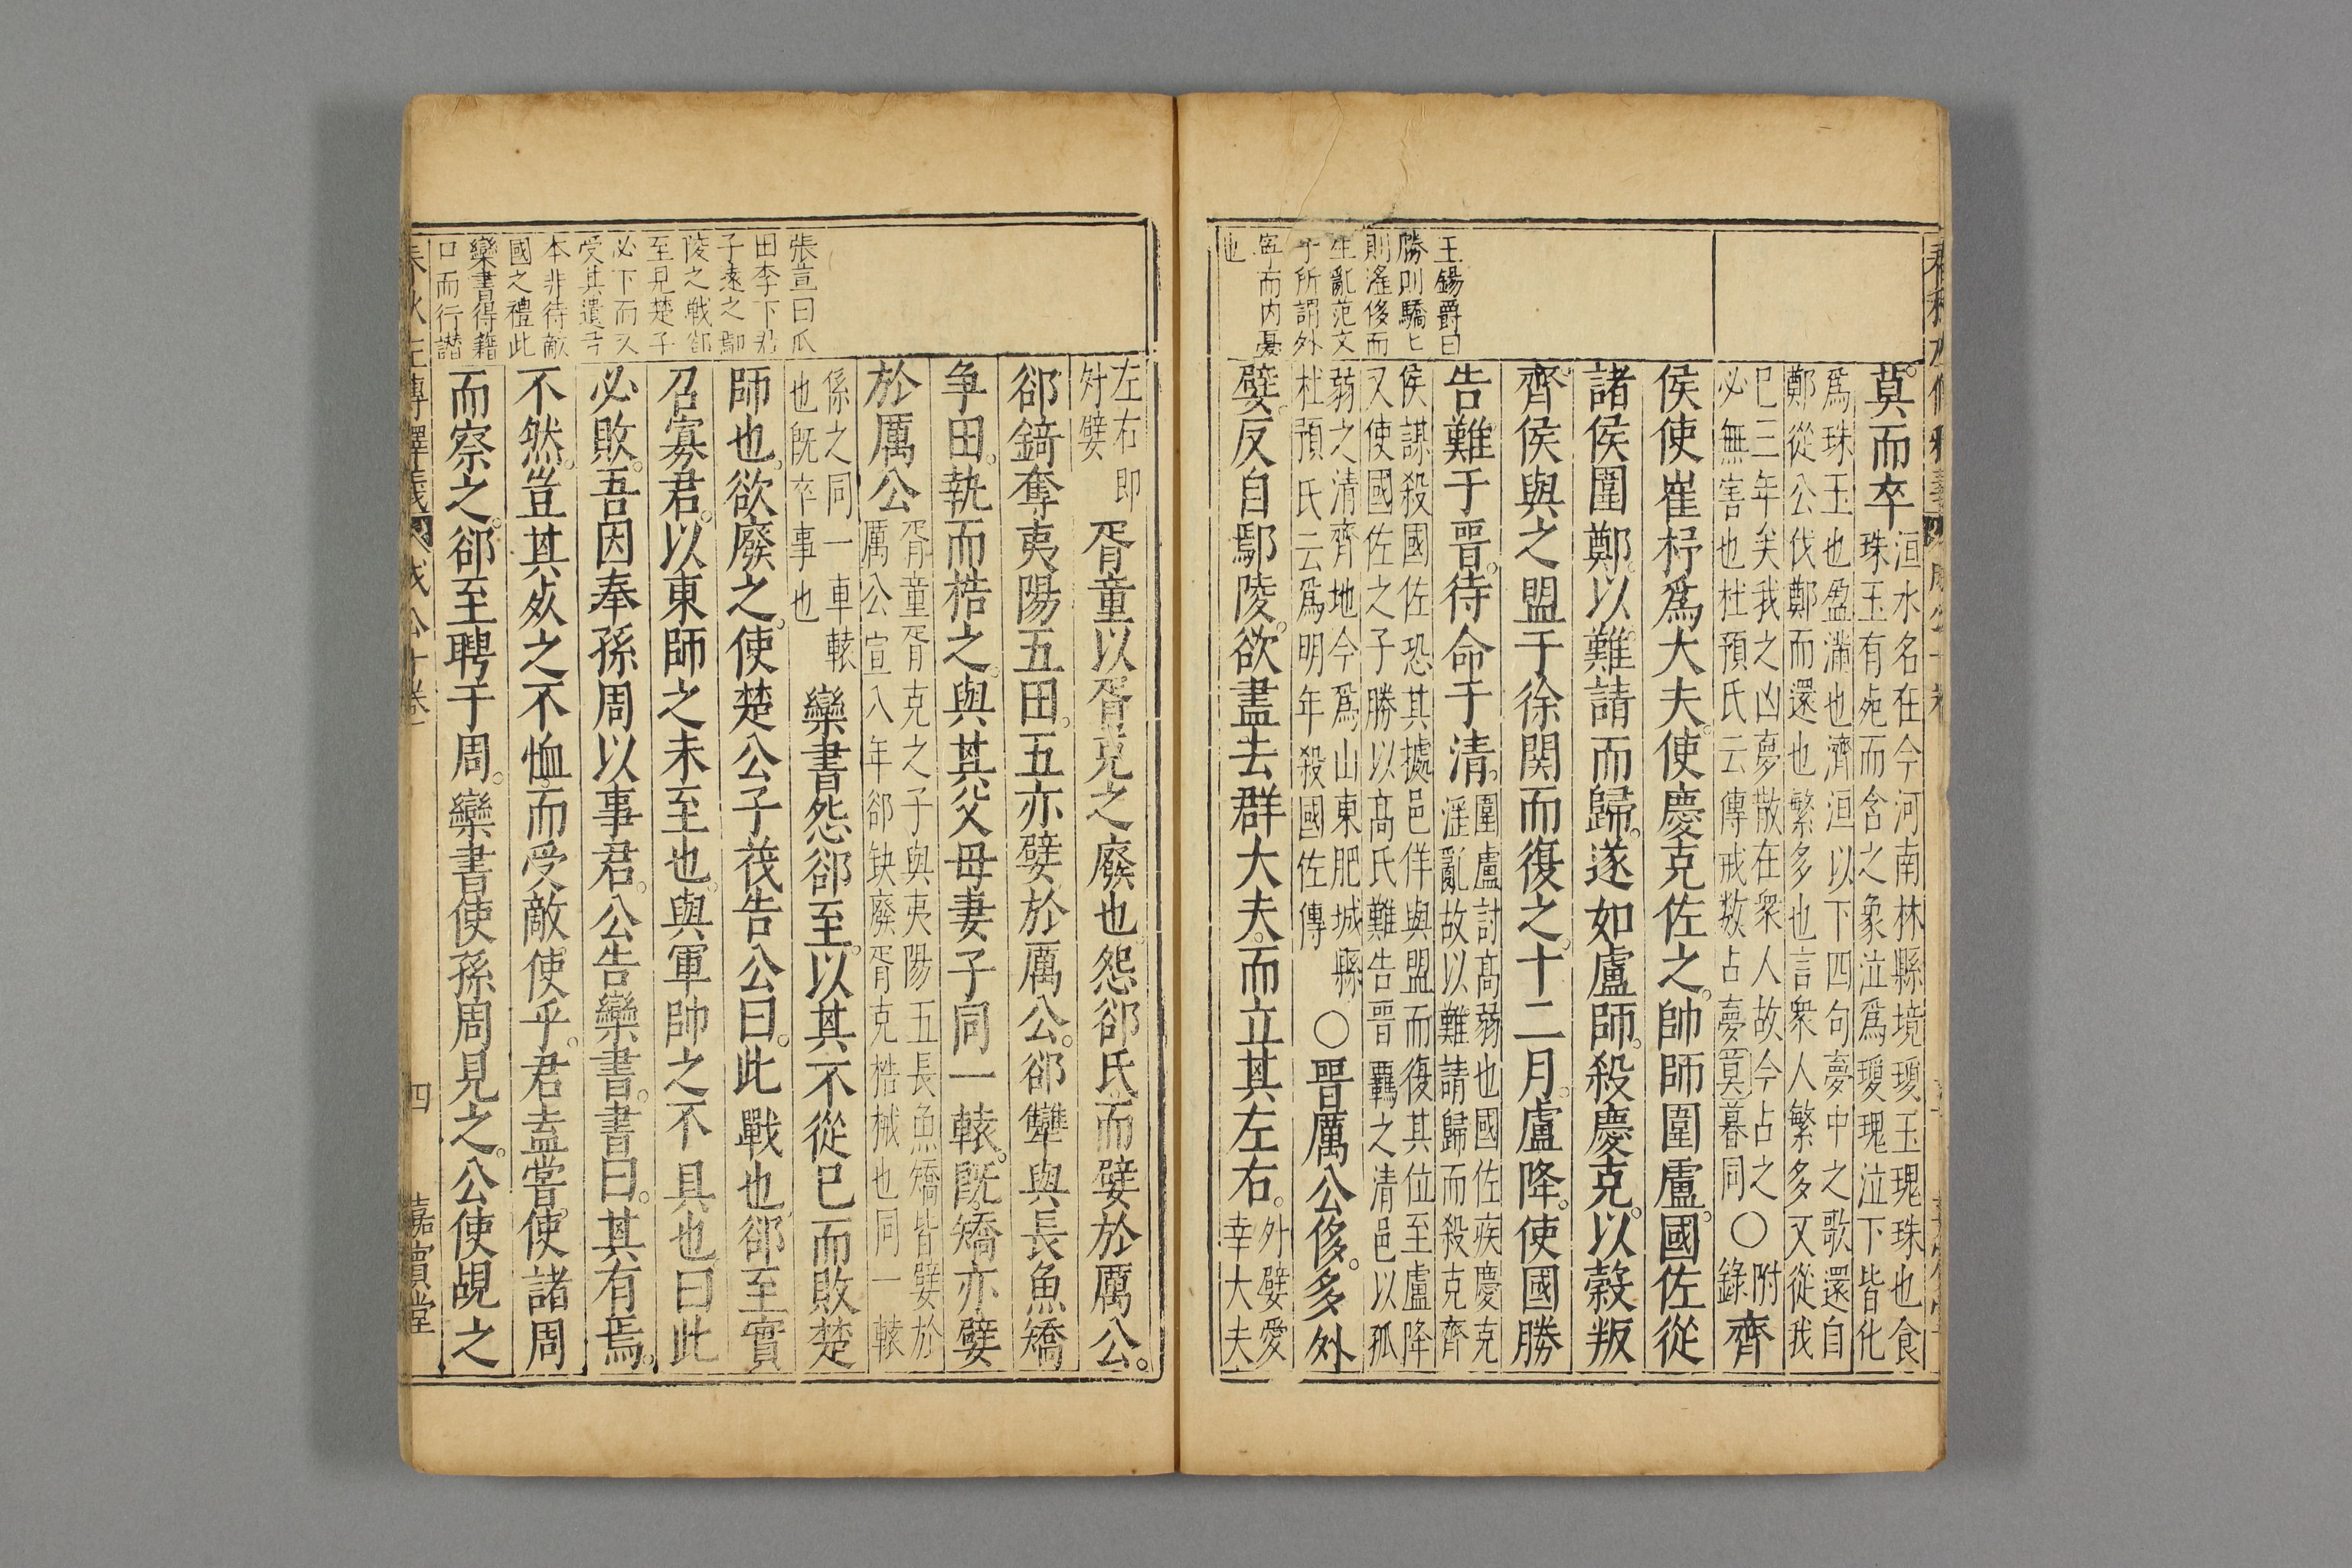 王錫爵曰
勝則驕亡
則滛侈而
生亂范文
子所謂外
寧而内憂
也
莫。而卒洹水名在今河南林縣境瓊玉瑰珠也食
珠玉有而含之象泣爲瓊瑰泣下皆化
爲珠玉也盈滿也濟洹以下四句夢中之歌還自
鄭從公伐鄭而還也繁多也言衆人繁多又從我
已三年矣我之凶夢散在衆人故今占之
必無害也杜預氏云傳戒数占夢莫暮同○附錄齊
侯使崔杼爲大夫。使慶克佐之。帥師圍盧。國佐從
諸侯圍鄭。以難請而歸。遂如盧師。殺慶克。以榖叛
齊侯與之盟于徐関而復之。十二月。盧降。使國勝
告難于晋。待命于清。圍盧討髙弱也國佐疾慶克
滛亂故以難請歸而殺克齊
侯謀殺國佐恐其據邑佯與盟而復其位至盧降
又使國佐之子勝以髙氏難告晋羈之清邑以孤
弱之清齊地今爲山東肥城縣
杜預氏云爲明年殺國佐傳○晋厲公侈。多外
嬖。反自鄢陵。欲盡去群大夫。而立其左右。外嬖愛
幸大夫
張萱曰瓜
田李下君
子遠之鄢
陵之戰郤
至見楚子
必下而又
受其遺弓
本非待敵
國之禮此
欒書得藉
口而行譖
左右即
外嬖胥童以胥克之廢也。怨郤氏而嬖於厲公。
郤錡奪夷陽五田。五亦嬖於厲公。郤犨與長魚矯
争田。執而梏之。與其父母妻子同一轅。旣。矯亦嬖
於厲公胥童胥克之子與夷陽五長魚矯皆嬖於
厲公宣八年郤缺廢胥克梏械也同一轅
係之同一車轅
也旣卒事也欒書怨郤至。以其不從已而敗楚
師也。欲廢之。使楚公子茷告公曰。此戰也。郤至實
召寡君。以東師之未至也。與軍帥之不具也。曰此
必敗。吾因奉孫周以事君。公告欒書。書曰。其有焉。
不然。豈其死之不恤。而受敵使乎。君盍嘗使諸周
而察之。郤至聘于周。欒書使孫周見之。公使覘之
春秋左傳釋義 成公十卷 四 嘉賓堂